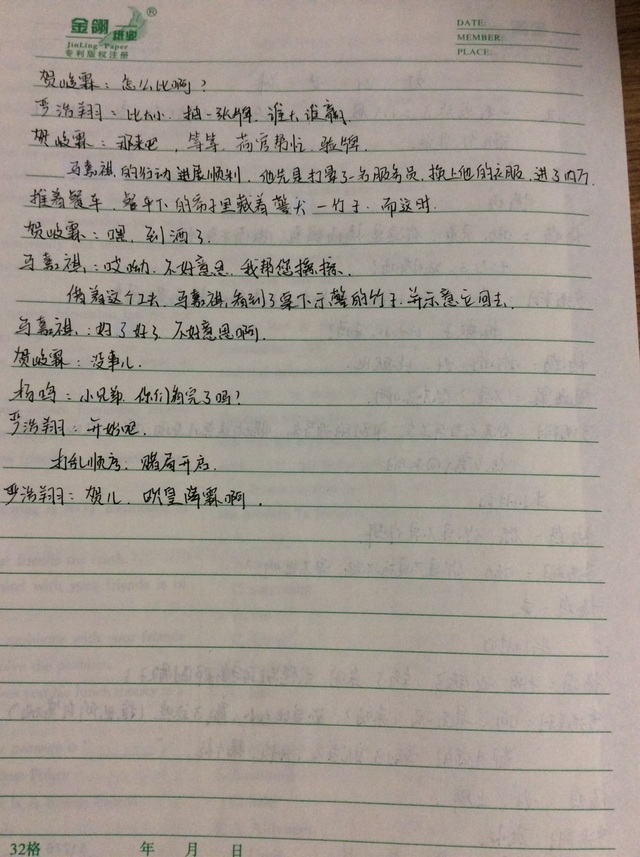 金翎纸业®
JinLing Paper
专利版权注册
DATE:
MEMBER:
PLACE:
贺峻霖：怎么比啊？
严浩翔：比大小，抽一张牌，谁大谁赢。
贺峻霖：那来吧，等等，荷官帮忙验牌。
马嘉祺的行动进展顺利，他先是打晕了一名服务员，换上他的衣服，进了内厅，
推着餐车，餐车下的布子里藏着警犬一竹子。而这时
贺峻霖：嘿，到酒了。
马嘉祺：哎呦，不好意思，我帮您擦擦。
借着这个工夫，马嘉祺看到了桌下示警的竹子，并示意它回去。
马嘉祺：好了好了，不好意思啊。
贺峻霖：没事儿。
杨鸣：小兄弟，你们都完了吗？
严浩翔：开始吧。
打乱顺序，赌局开启。
严浩翔：贺儿，欧皇降霖啊。
32格 年 月 日